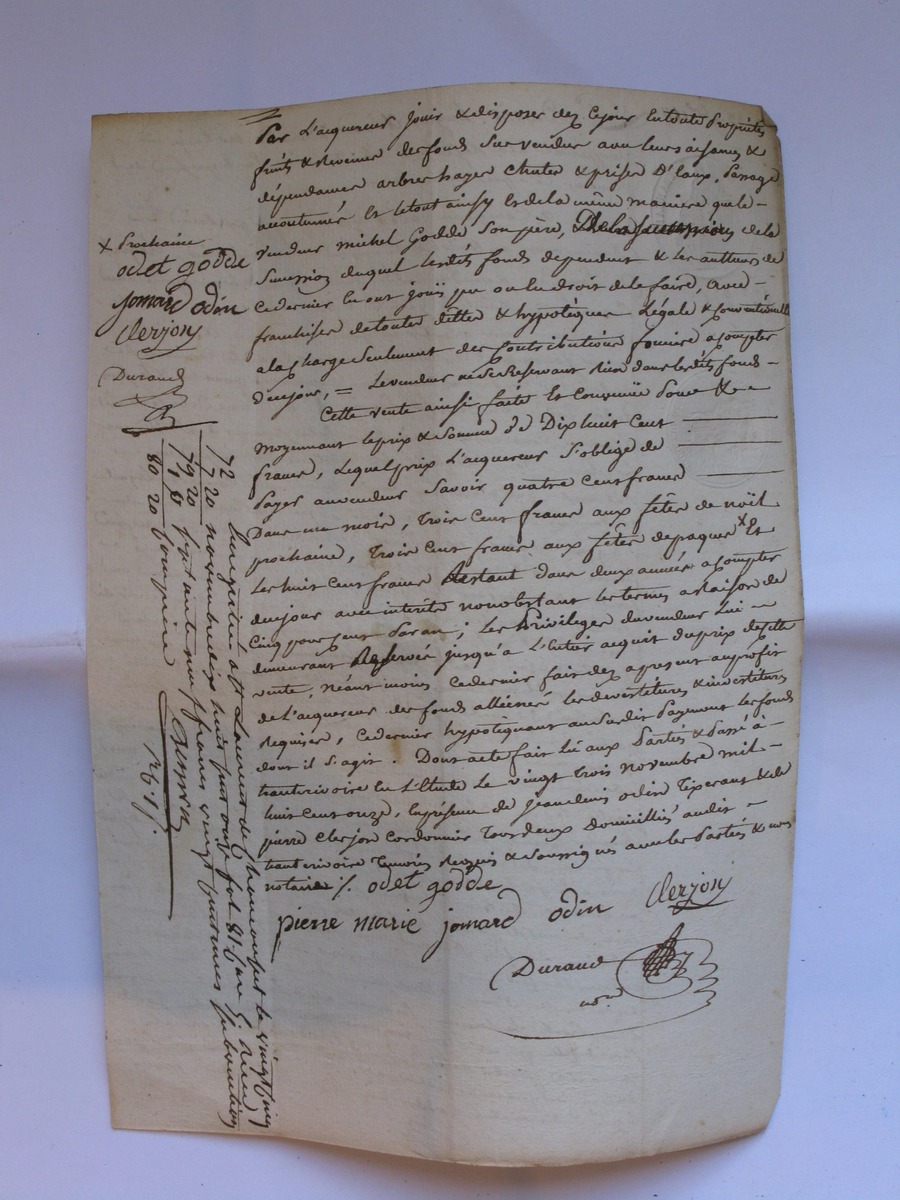 Par L'acquereur jouir & disposer dez cejour entoute Propriété
fruits & Revenus des fonds sus vendus avec leurs aisances &
dépendances arbres hayes chutes & prises D'eaux, Passage
accoutumés Et letout ainsy Et de la même maniere que le -
vendeur michel Goddé Son père, De la Succession de la
Succession duquel lesdits fonds dependent & les autteurs de
Cedernier En ont jouï pu ou En droit de le faire, avec -
franchise de toutes dettes & hypotèques Légale & Conventionelle
a la Charge Seulement des Contributions foncière a Compter
de cejour, = Le vendeur ne Se Reservant Rien dans lesdits fonds -
Cette vente ainsi faite Et Convenüe Pour & -
moyennant le prix & Somme de Dix huit Cent
francs, Lequel prix L'acquereur S'oblige de
Payer au vendeur Savoir quatre Cent francs
Dans un mois, Trois Cent francs aux fêtes de noël
prochaine, Trois Cent francs aux fêtes de paques x Et
Les huit Cent francs Restant dans deux années a Compter
de cejour avec interêts nonobstant les termes a Raison de
Cinq pour Cent Par an; Les Privileges du vendeur Lui -
demeurant Reservés jusqu'à L'Entier acquit du prix de cette
vente, néant moins cedernier fait dez a present au profit
de L'acquereur des fonds alliénés les devestitures & investitures
Requises, Cedernier hypotèquant au Susdit Payement les fonds
dont il S'agit. Dont acte fait Lu aux Parties & Passé à -
hauterivoire En L'Etude Le vingt Trois novembre mil -
huit Cent onze, En présence de jean denis odin Tisserant & de
pierre clerjon Cordonnier Tous deux Domicilliés audit -
hauterivoire Temoins Requis & Soussignés avec les Parties & nous
notaire ./. odet godde
pierre marie jomard odin Clerjon
Durand
no.re
x Prochaine
odet godde
jomard odin
Clerjon
Durand
Enregistré à St Laurent de Chamousset le vingt cinq
72 novembre dix huit cent onze fol. 81.
7 20
79 20 soixante dix neuf francs vingt centimes Subvention
1 "
80 20 Comprise